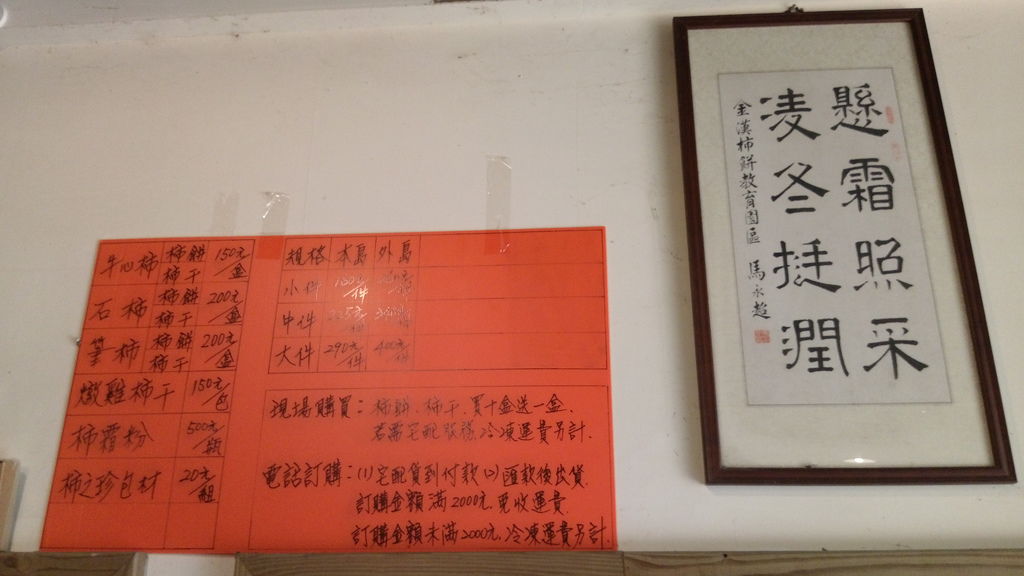 牛心柿 柿餅 150元/盒
柿干
石柿 柿餅 200元/盒
柿干
筆柿 柿餅 200元/盒
柿干
燉雞柿干 150元/包
柿霜粉 500元/瓶
柿之珍包材 20元/組
規格 本島 外島
小件
中件
大件 290元/件
現場購買：柿餅、柿干、買十盒送一盒、
若需宅配服務,冷凍運費另計.
電話訂購：(1)宅配貨到付款 (2)匯款後出貨.
訂購金額滿2000元,免收運費.
訂購金額未滿2000元,冷凍運費另計.
懸霜照采
凌冬挺潤
金漢柿餅教育園區 馬永超